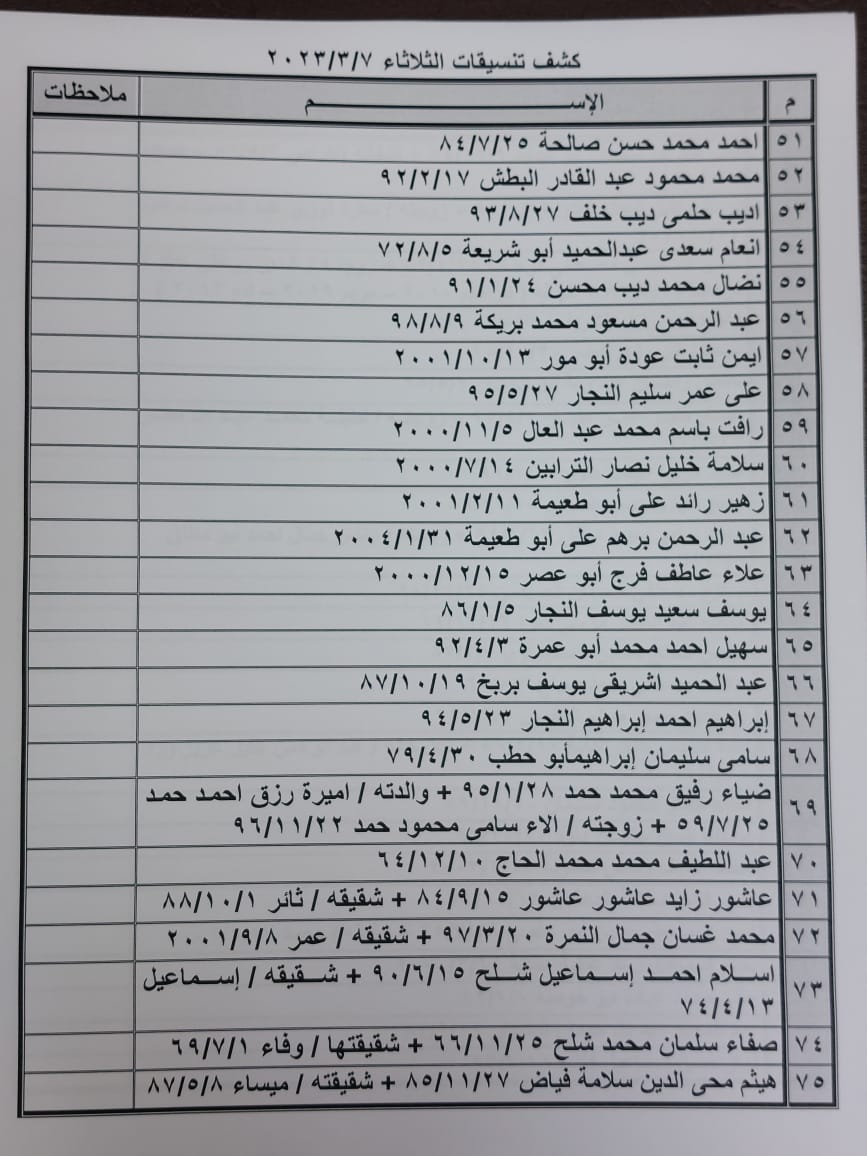 كشف تنسيقات الثلاثاء ٢٠٢٣/٣/٧
م الإســـــــم ملاحظات
٥١ احمد محمد حسن صالحة ٨٤/٧/٢٥
٥٢ محمد محمود عبد القادر البطش ٩٢/٢/١٧
٥٣ اديب حلمى ديب خلف ٩٣/٨/٢٧
٥٤ انعام سعدى عبدالحميد أبو شريعة ٧٢/٨/٥
٥٥ نضال محمد ديب محسن ٩١/١/٢٤
٥٦ عبد الرحمن مسعود محمد بريكة ٩٨/٨/٩
٥٧ ايمن ثابت عودة أبو مور ٢٠٠١/١٠/١٣
٥٨ على عمر سليم النجار ٩٥/٥/٢٧
٥٩ رافت باسم محمد عبد العال ٢٠٠٠/١١/٥
٦٠ سلامة خليل نصار الترابين ٢٠٠٠/٧/١٤
٦١ زهير رائد على أبو طعيمة ٢٠٠١/٢/١١
٦٢ عبد الرحمن برهم على أبو طعيمة ٢٠٠٤/١/٣١
٦٣ علاء عاطف فرج أبو عصر ٢٠٠٠/١٢/١٥
٦٤ يوسف سعيد يوسف النجار ٨٦/١/٥
٦٥ سهيل احمد محمد أبو عمرة ٩٢/٤/٣
٦٦ عبد الحميد اشريقى يوسف بربخ ٨٧/١٠/١٩
٦٧ إبراهيم احمد إبراهيم النجار ٩٤/٥/٢٣
٦٨ سامى سليمان إبراهيمأبو حطب ٧٩/٤/٣٠
٦٩ ضياء رفيق محمد حمد ٩٥/١/٢٨ + والدته / اميرة رزق احمد حمد
٥٩/٧/٢٥ + زوجته / الاء سامى محمود حمد ٩٦/١١/٢٢
٧٠ عبد اللطيف محمد محمد الحاج ٦٤/١٢/١٠
٧١ عاشور زايد عاشور عاشور ٨٤/٩/١٥ + شقيقه / ثائر ٨٨/١٠/١
٧٢ محمد غسان جمال النمرة ٩٧/٣/٢٠ + شقيقه / عمر ٢٠٠١/٩/٨
٧٣ اسلام احمد إسماعيل شلح ٩٠/٦/١٥ + شقيقه / إسماعيل
٧٤/٤/١٣
٧٤ صفاء سلمان محمد شلح ٦٦/١١/٢٥ + شقيقتها / وفاء ٦٩/٧/١
٧٥ هيثم محى الدين سلامة فياض ٨٥/١١/٢٧ + شقيقته / ميساء ٨٧/٥/٨